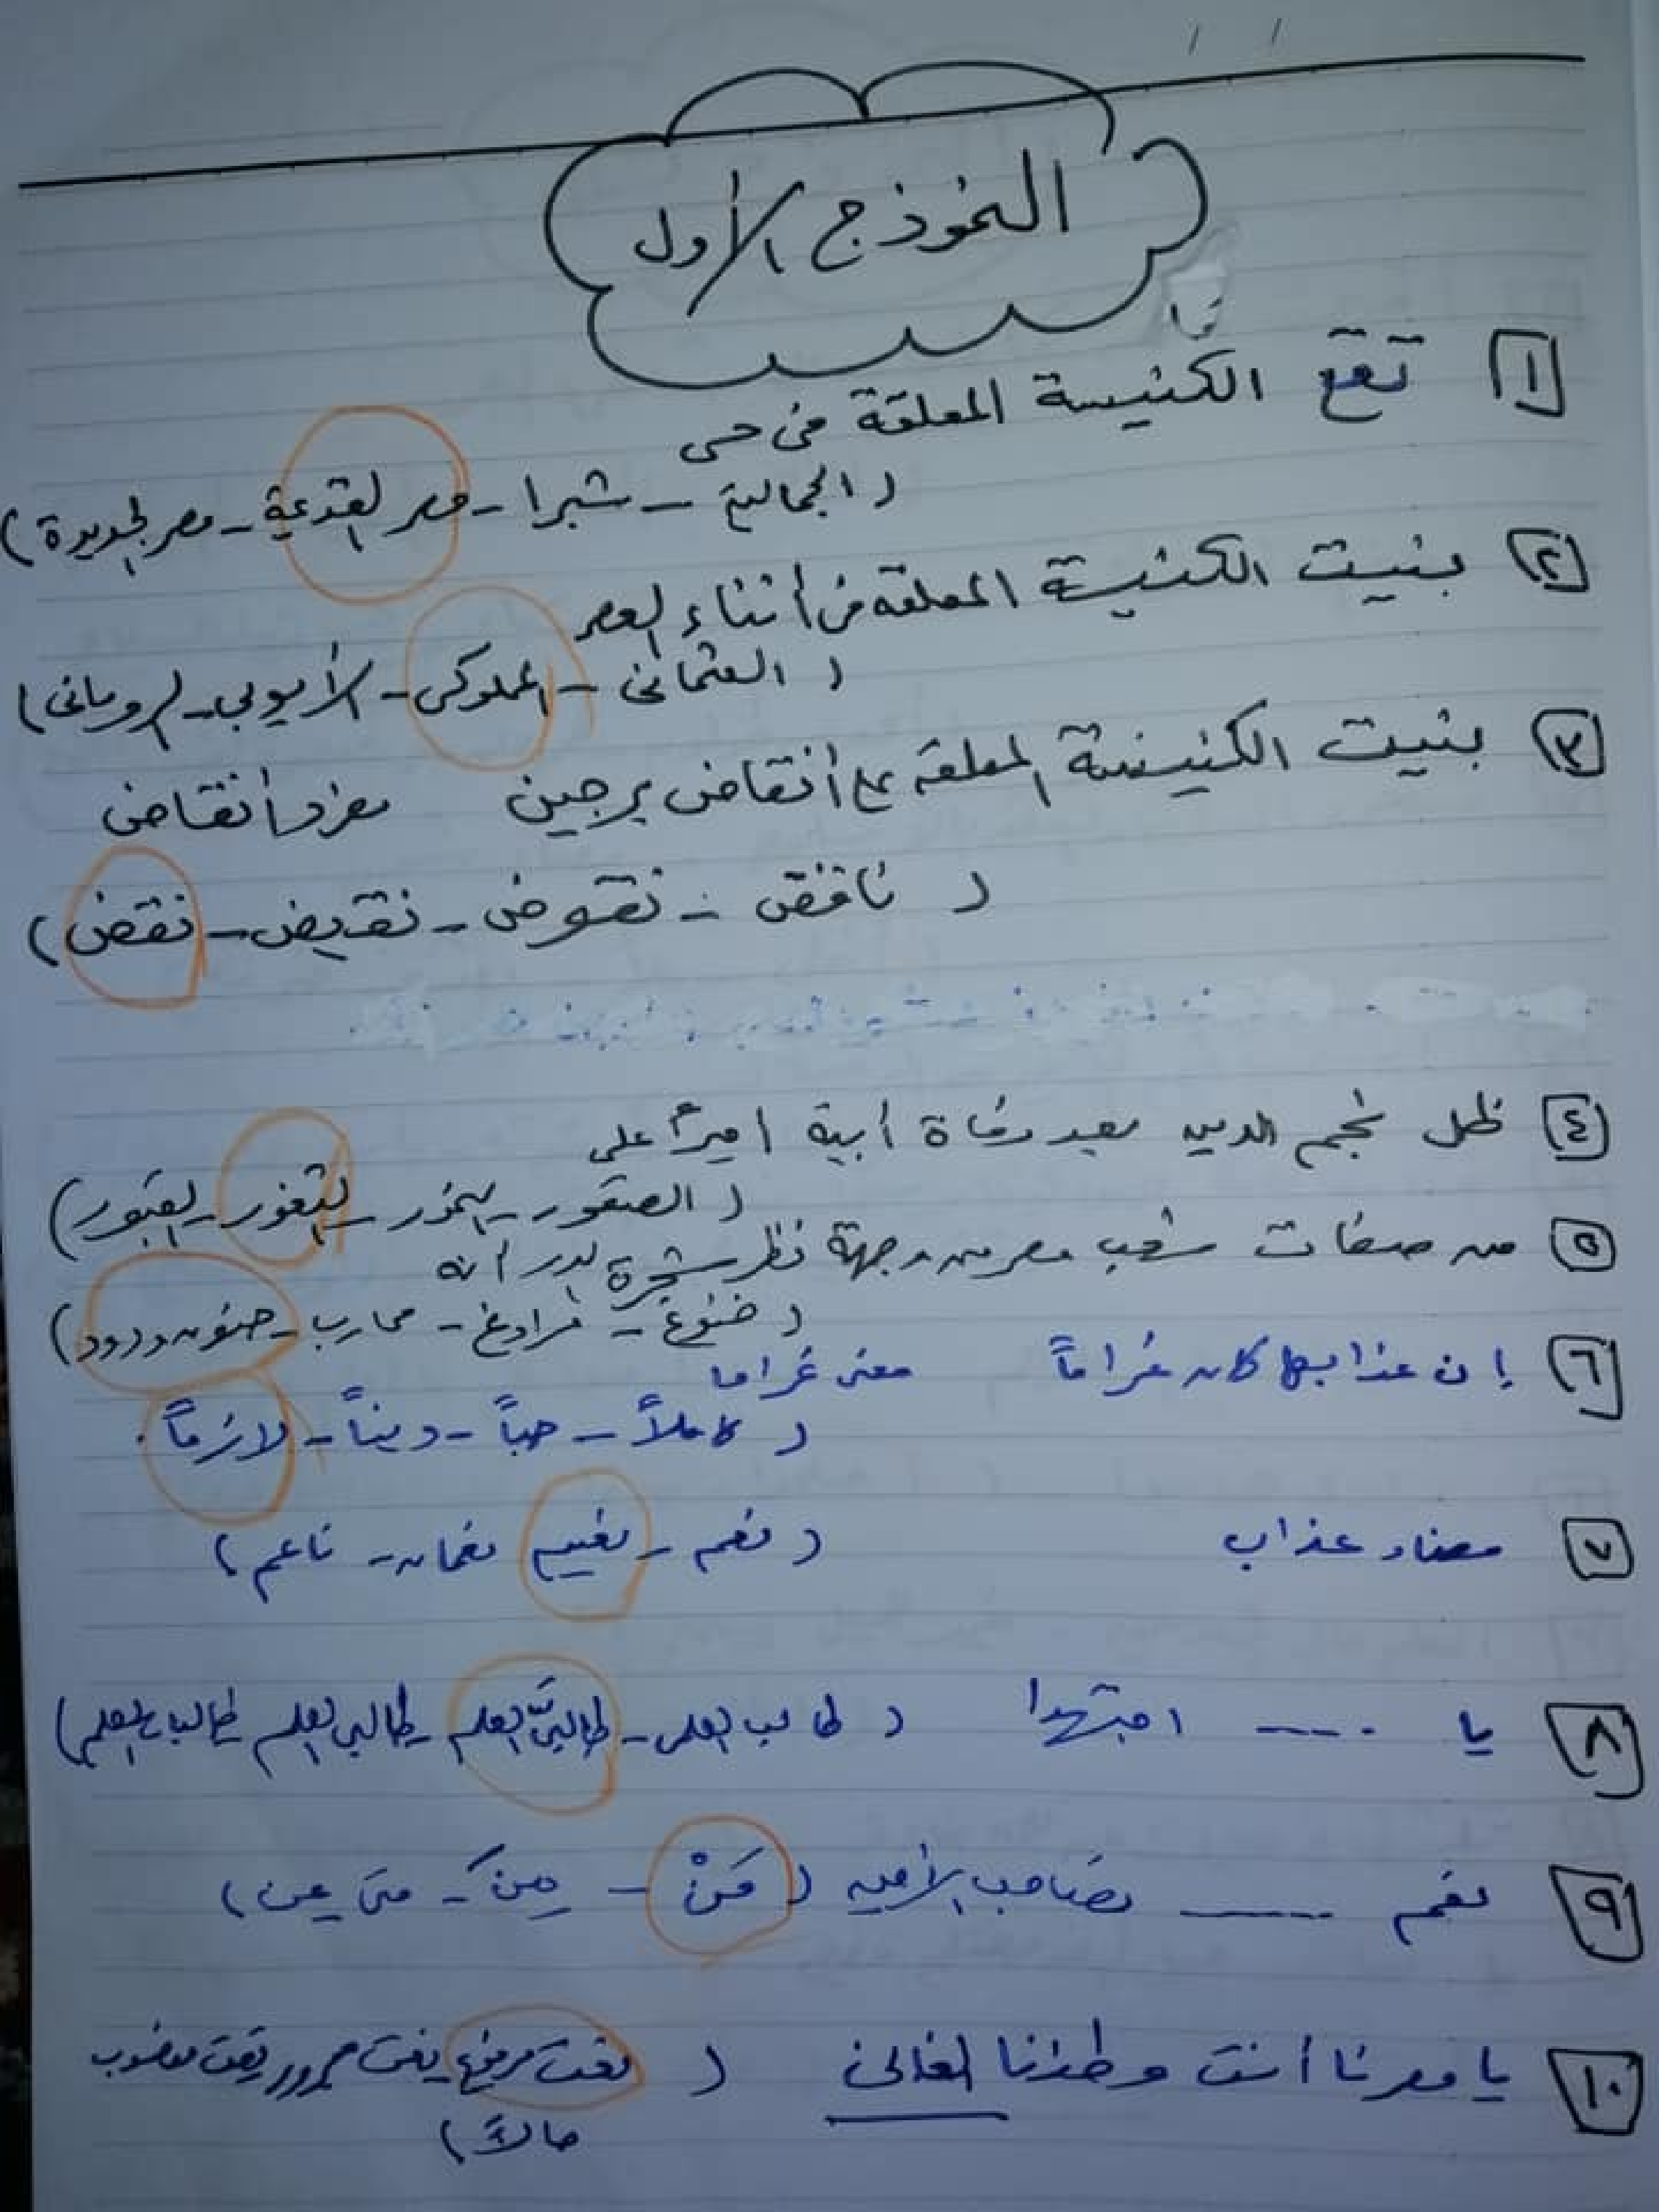 النموذج الأول
١ تقع الكنيسة المعلقة فى حى
( الجمالية - شبرا - مصر القديمة - مصر الجديدة )
٢ بنيت الكنيسة المعلقة فى أثناء العصر
( العثمانى - المملوكى - الأيوبى - الرومانى )
٣ بنيت الكنيسة المعلقة على أنقاض برجين مفرد أنقاض
( ناقض - نقوض - نقيض - نقض )
٤ ظل نجم الدين بعد وفاة أبية اميرًا على
( الصقور - النمور - الثغور - القبور )
٥ من صفات شعب مصر من وجهة نظر شجرة الدر أنه
( خنوع - مراوغ - محارب - حنون ودود )
٦ إن عذابها كان غراماً معنى غراما
( كاملاً - حباً - ديناً - لازماً .
٧ مضاد عذاب ( نعم - نعيم - نعمان - ناعم )
٨ يا ---- اجتهدا ( طالب العلم - طالبَىّ العلم - طالبى العلم - طالبا العلم )
٩ نعم ---- تصاحب الأمين ( مَنْ - مِن - متى - عن )
١٠ يا مصرنا أنت وطننا الغالى ( نعت مرفوع - نعت مجرور - نعت منصوب
حالاً )